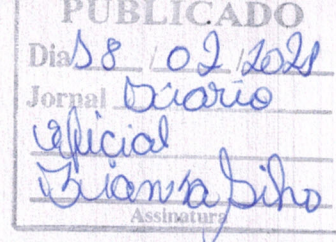 PUBLICADO
Dia 18 / 02 / 2021
Jornal Diario
oficial
Assinatura